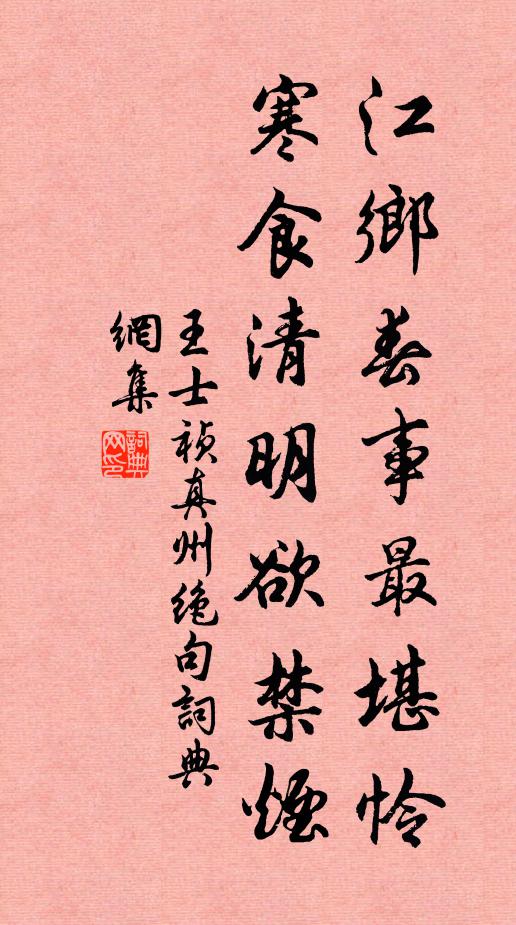 江鄉春事最堪憐
寒食清明欲禁煙
王士禎真州絕句詞典
網集
詞典
网印